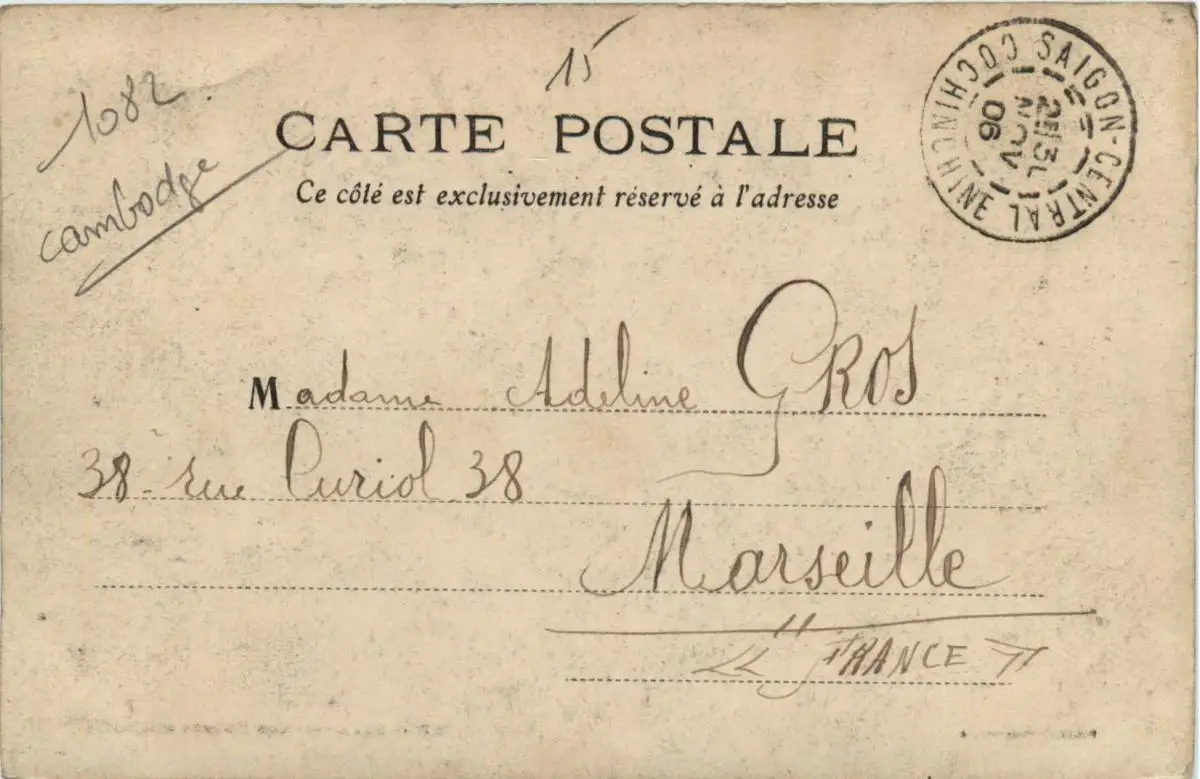 15
1082
cambodge
CARTE POSTALE
Ce côté est exclusivement réservé à l'adresse
SAIGON-CENTRAL
COCHINCHINE
NOV
06
Madame Adeline GROS
38 - rue Curiol 38
Marseille
« FRANCE »